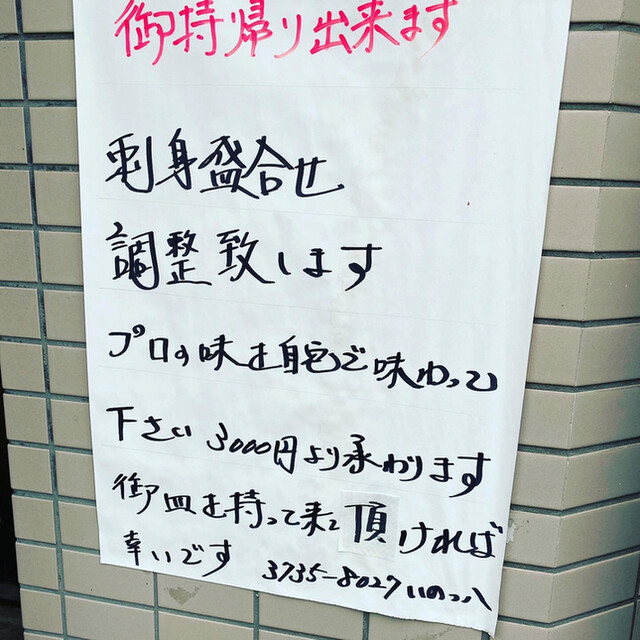 御持帰り出来ます
刺身盛合せ
調整致します
プロの味を自宅で味わって
下さい 3000円より承わります
御皿を持って来て頂ければ
幸いです 3735-8027 いのっ八